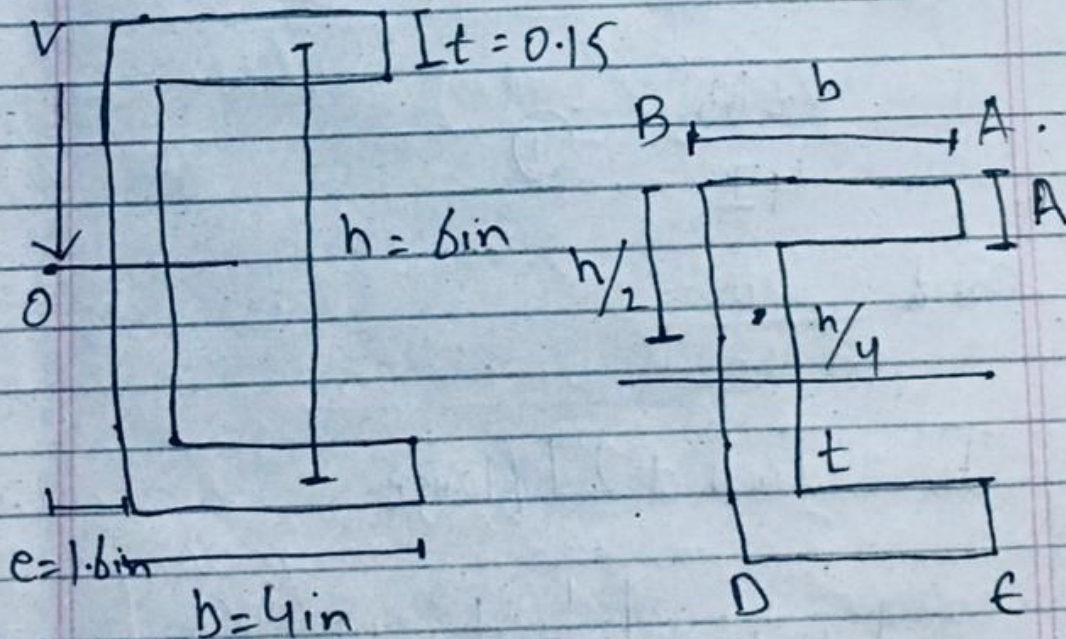 V
t = 0.15
h = 6in
O
e=1.6in
b=4in
b
B
A
A
h/2
h/4
t
D
E